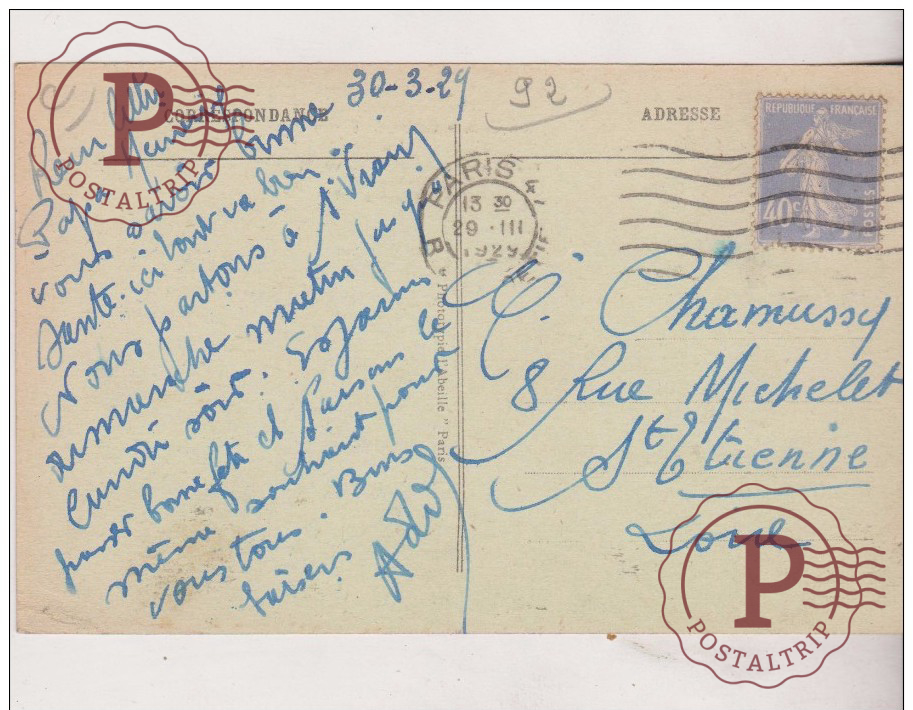 30-3-29
92
CORRESPONDANCE
ADRESSE
Papa
vous bonne
Santé. ici tout va bien.
Nous partons à St
dimanche matin jusqu'
Lundi soir. Espérons
passer bonne fête et faisons le
même souhait pour
vous tous. Bons
baisers
" Photographie L'Abeille " Paris
PARIS
13 30
29 · III
1929
REPUBLIQUE FRANÇAISE
40c
POSTES
C. Chamussy
8 Rue Michelet
St Etienne
Loire
P
POSTALTRIP
P
POSTALTRIP